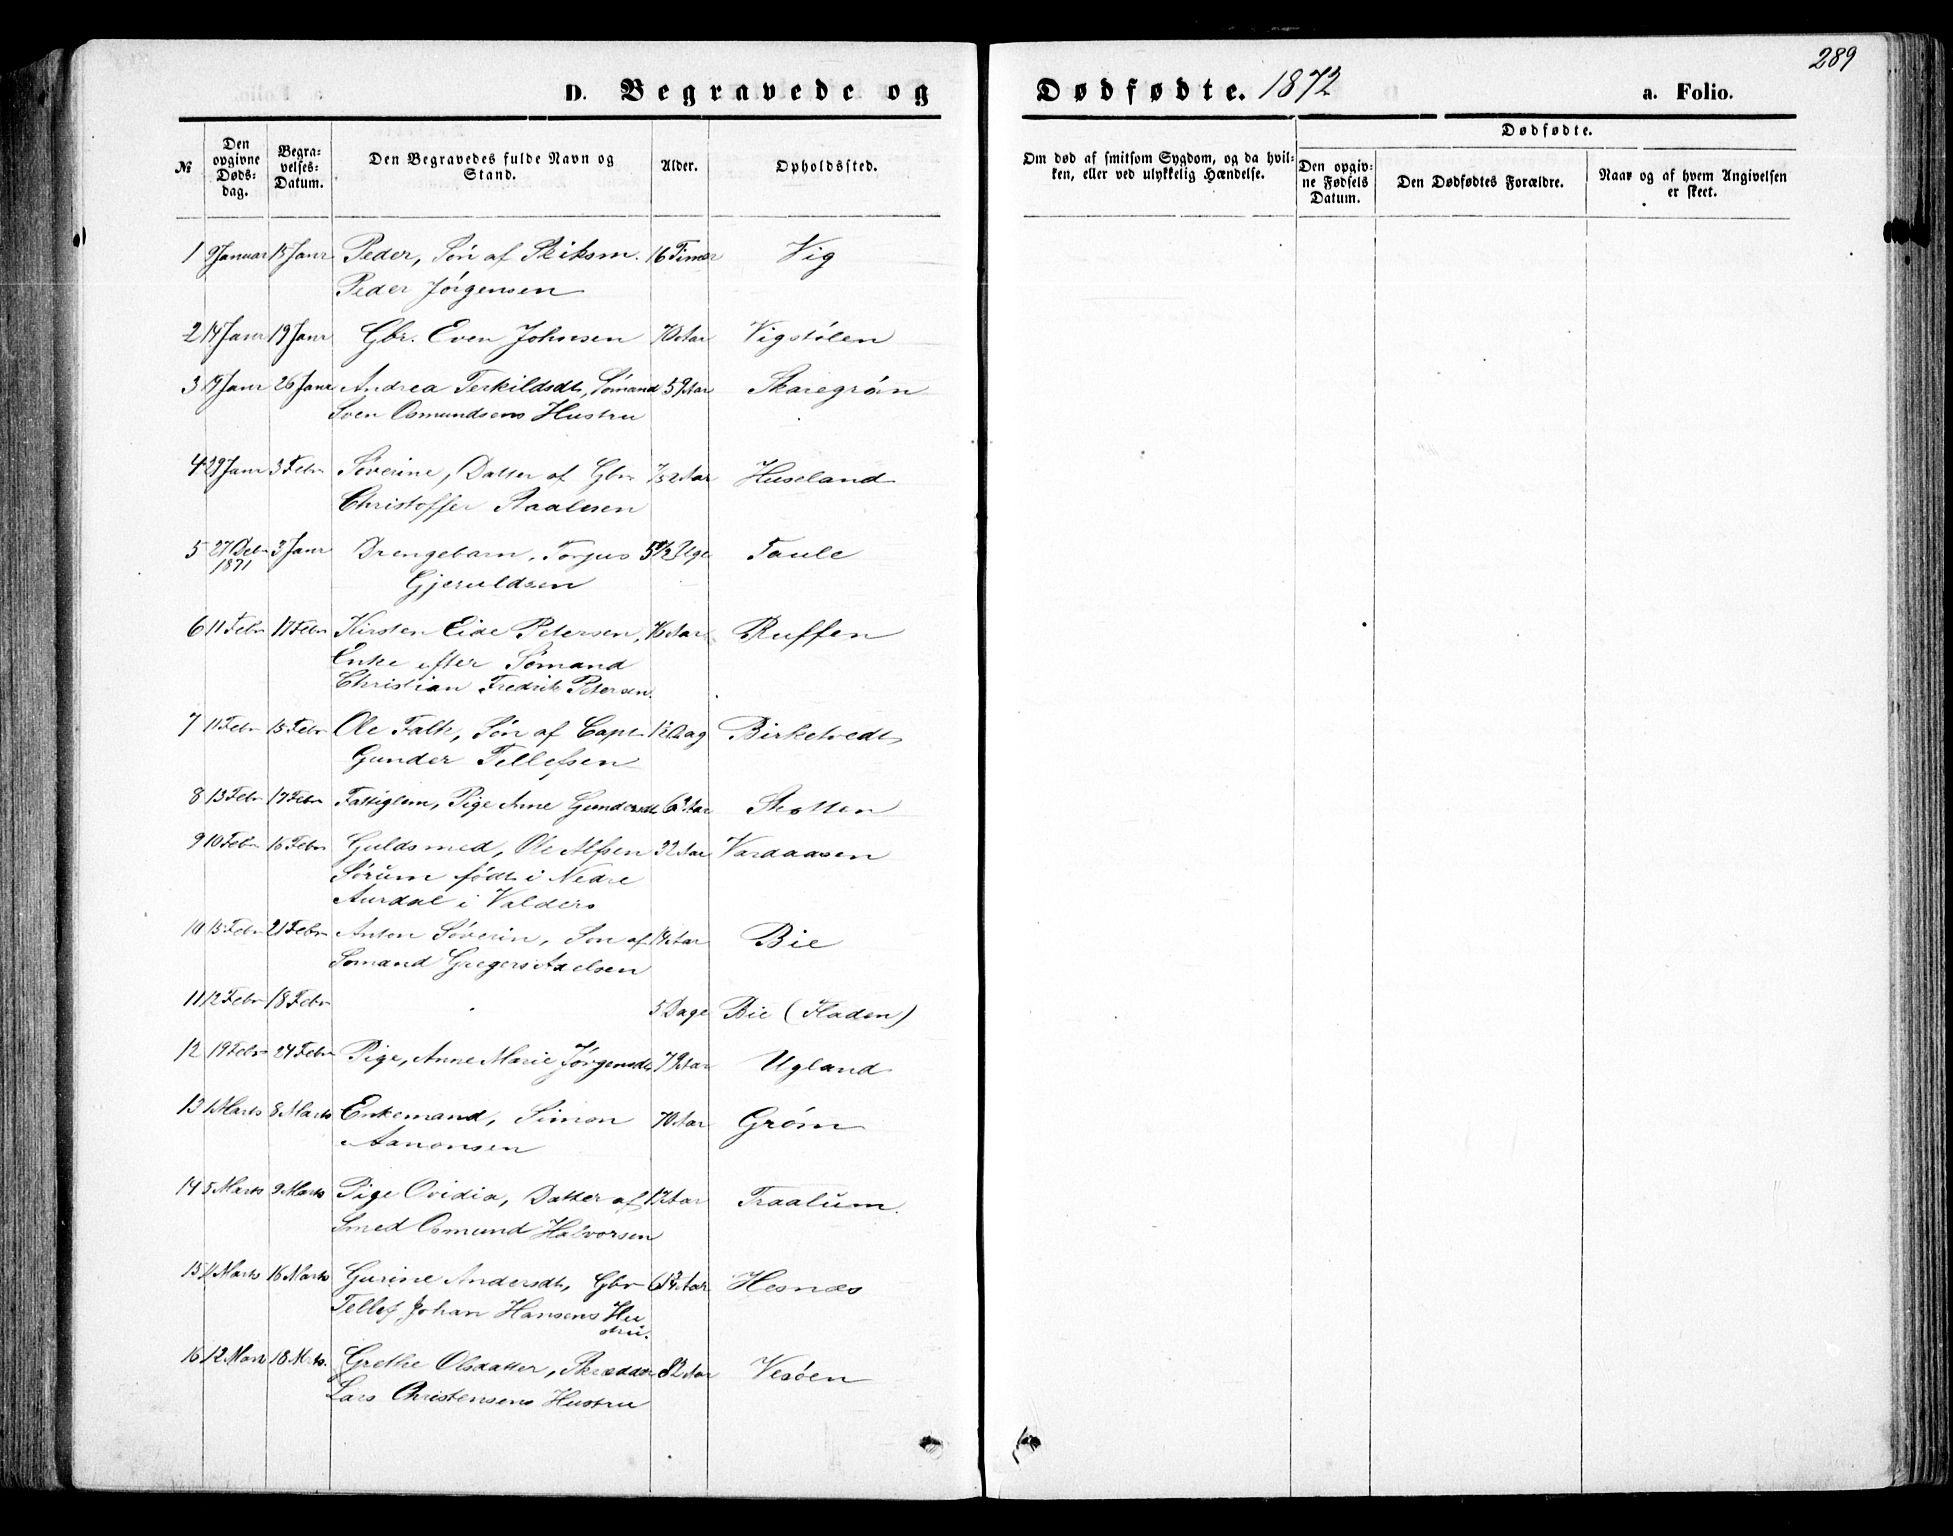 289
D. Begravede og Dødfødte. 1872 a. Folio.
№ Den opgivne Dødsdag. Begravelses-Datum. Den Begravedes fulde Navn og Stand. Alder. Opholdssted. Om død af smitsom Sygdom, og da hvilken, eller ved ulykkelig Hændelse. Dødfødte. Den opgivne Fødsels Datum. Den Dødfødtes Forældre. Naar og af hvem Angivelsen er skeet.
1 9 Januar 15 Janr Peder, Søn af 16 Timer Vig
Peder Jørgensen
2 14 Janr 19 Janr Gbr. Even Johnsen 70 Aar Vigstølen
3 19 Janr 26 Janr Andrea Terkildsdt, Sømand 59 Aar Skaregrøn
Sven Osmundsens Hustru
4 29 Janr 3 Febr Søverine, Datter af Gbr Aar Huseland
Christoffer Aaalesen
5 27 Debr 1871 3 Janr Drengebarn, Torjus 5 1/2 Uge Taule
Gjeruldsen
6 11 Febr 17 Febr Kirsten Eide Petersen, 76 Aar Ruffen
Enke efter Sømand
Christian Fredrik Petersen.
7 11 Febr 15 Febr Ole Falk, Søn af Capt 1/2 Dag Birketvedt
Gunder Tellefsen
8 13 Febr 17 Febr Fattiglem, Pige Anne Gundersdt Aar Skotten
9 10 Febr 16 Febr Guldsmed, Ole Alfsen 32 Aar Vardaasen
Sørum født i Nedre
Aurdal i Valders
10 15 Febr 21 Febr Anton Søverin, Søn af 14 Aar Bie
Sømand Gregers Axelsen
11 12 Febr 18 Febr 5 Dage Bie (Fladen)
12 19 Febr 24 Febr Pige, Anne Marie Jørgensdt 79 Aar Ugland
13 1 Marts 8 Marts Enkemand, Simon 70 Aar Grøm
Aanonsen
14 5 Marts 9 Marts Pige Ovidia, Datter af Aar Traalum.
Smed Osmund Halvorsen
15 Marts 16 Marts Gurine Andersdt, Gbr Aar Hesnæs
Tellef Johan Hansens Hustru.
16 12 Marts 18 Mrts. Grethe Olsdatter, Skrædder 82 Aar Vesøen
Lars Christensens Hustru